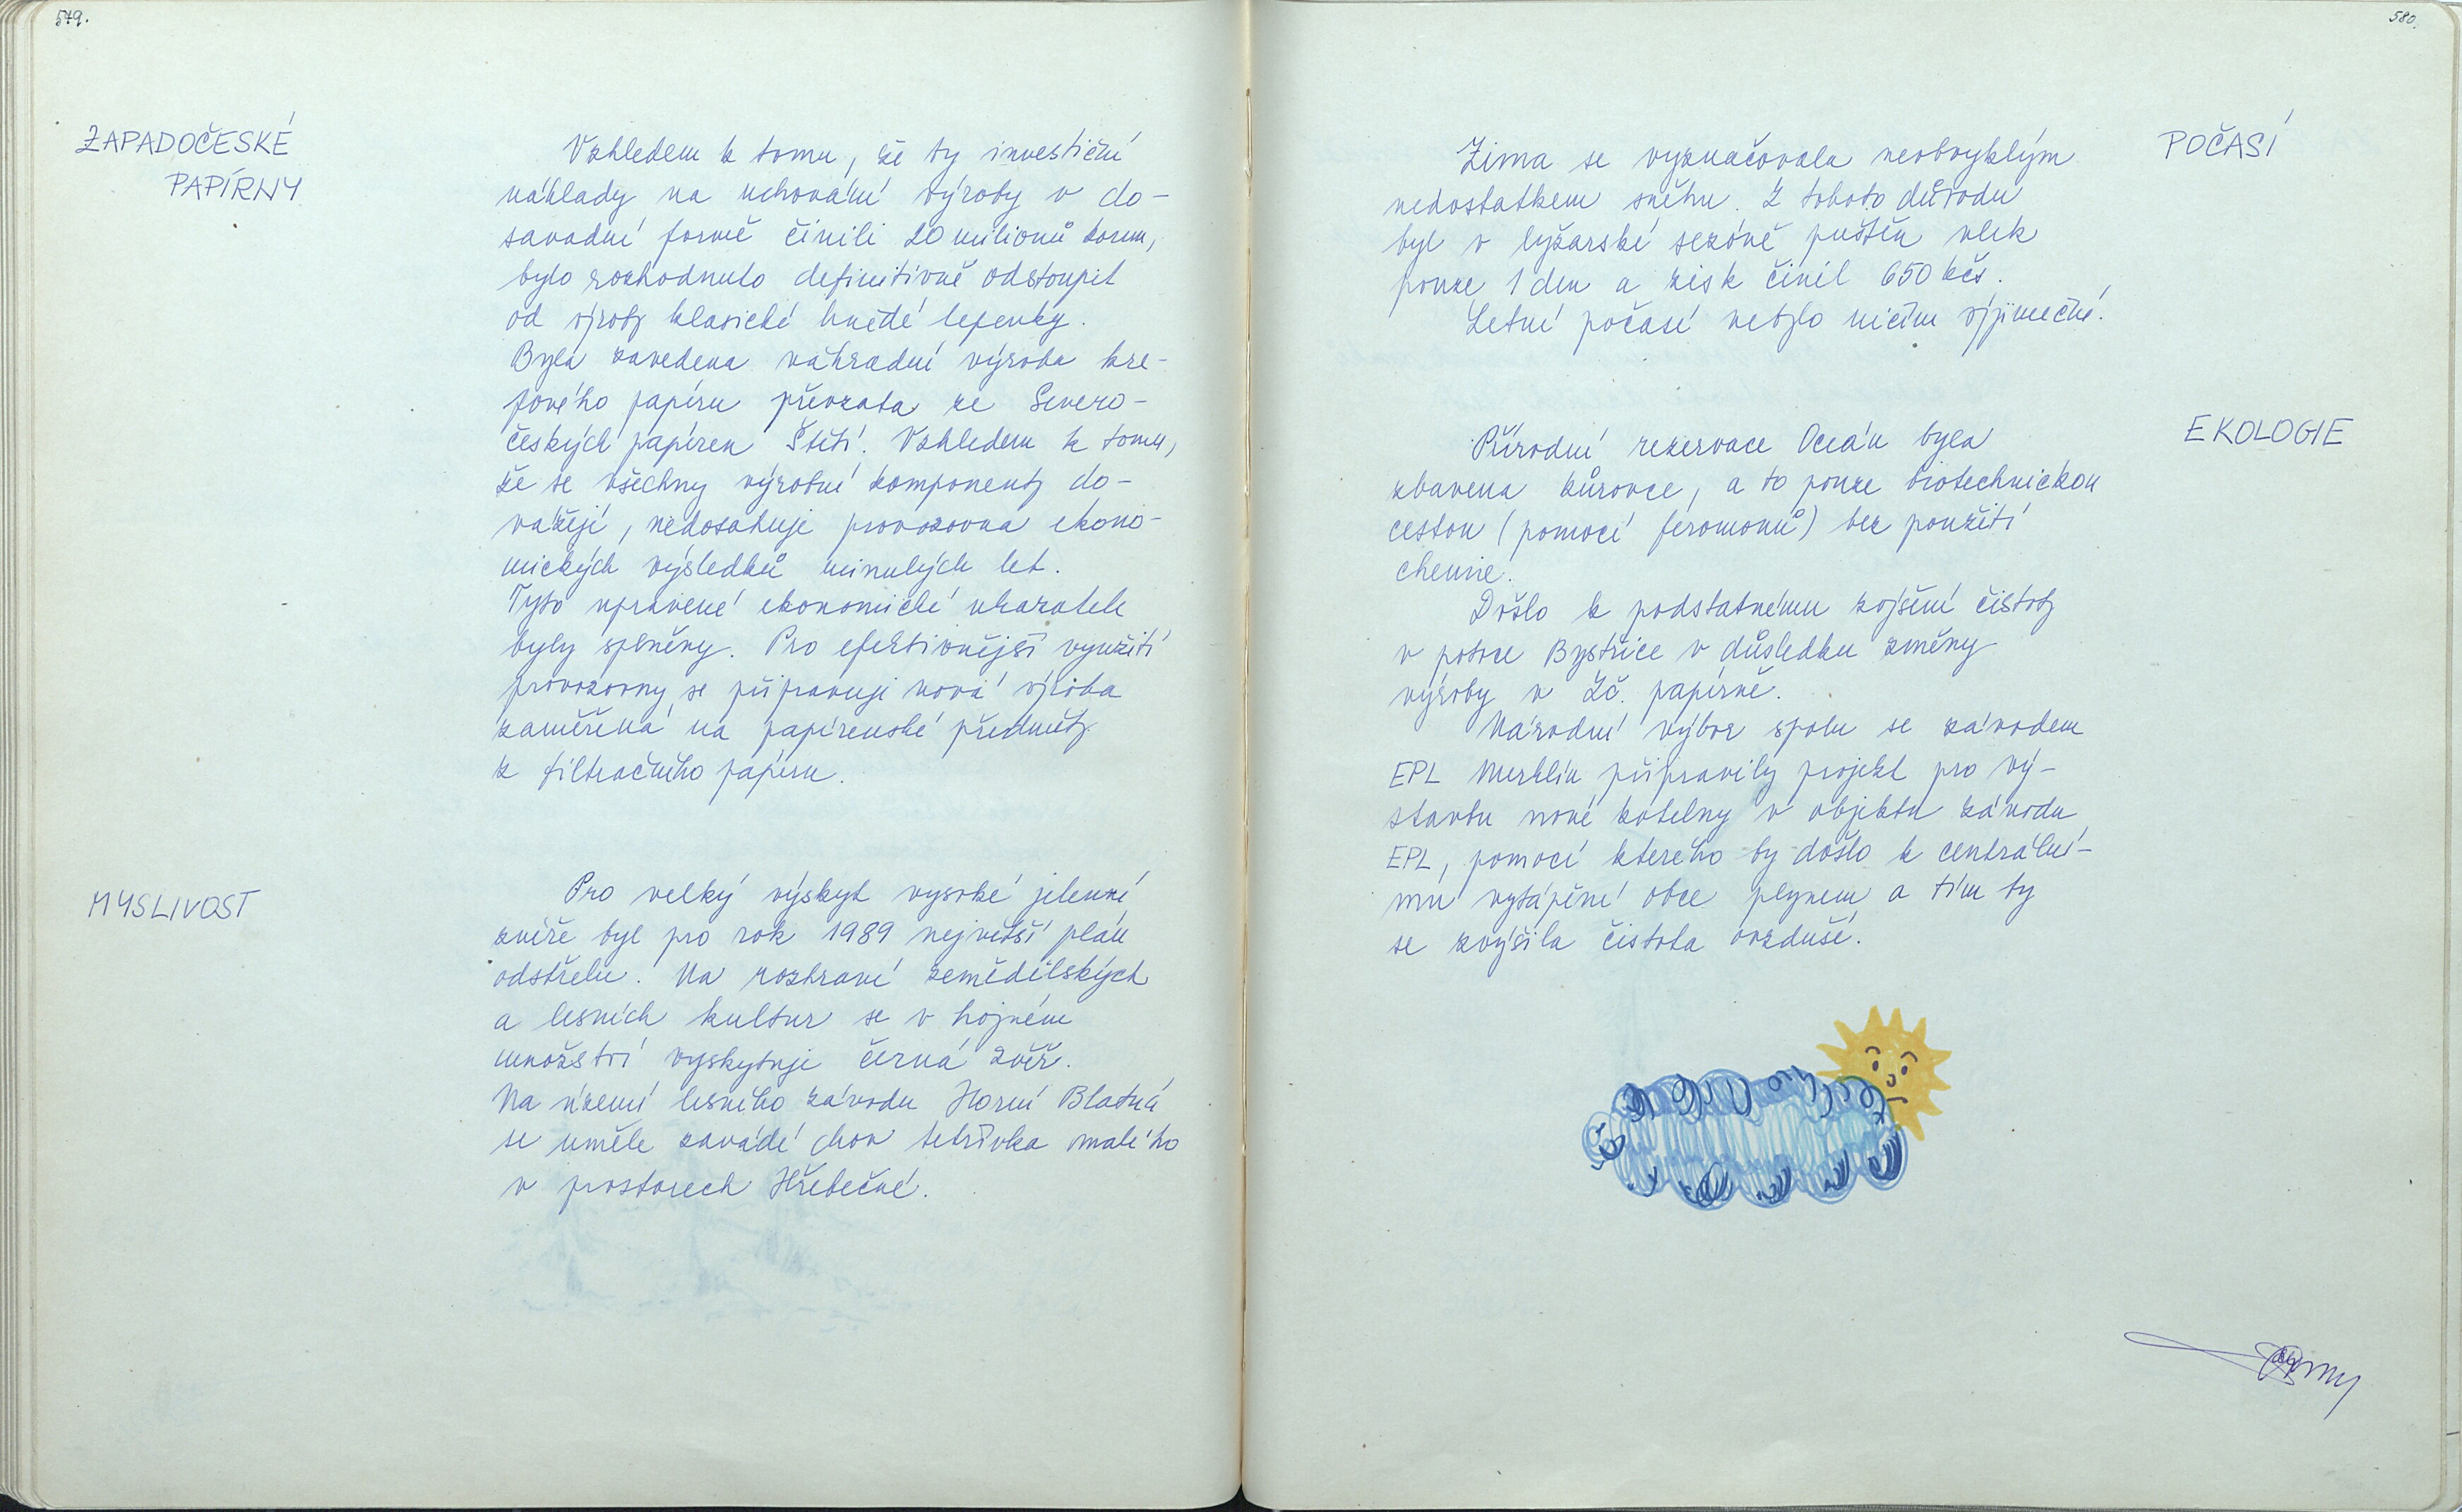 579.
ZAPADOČESKÉ
PAPÍRNY
Vzhledem k tomu, že by investiční
náklady na uchování výroby v do-
savadní formě činili 20 milionů korun,
bylo rozhodnuto definitivně odstoupit
od výroby klasické hnědé lepenky.
Byla zavedena náhradní výroba kre-
pového papíru převzata ze Severo-
českých papíren Štětí. Vzhledem k tomu,
že se všechny výrobní komponenty do-
vážejí, nedosahuje provozovna ekono-
mických výsledků minulých let.
Tyto upravené ekonomické ukazatele
byly splněny. Pro efektivnější využití
provozovny se připravuje nová výroba
zaměřená na papírenské předměty
z filtračního papíru.
MYSLIVOST
Pro velký výskyt vysoké jelenní
zvěře byl pro rok 1989 největší plán
odstřelu. Na rozhraní zemědělských
a lesních kultur se v hojném
množství vyskytuje černá zvěř.
Na území lesního závodu Horní Blatná
se uměle zavádí chov tetřívka malého
v prostorech Hřebečné.
580.
POČASÍ
Zima se vyznačovala neobvyklým
nedostatkem sněhu. Z tohoto důvodu
byl v lyžarské sezóně puštěn vlek
pouze 1 den a zisk činil 650 kčs.
Letní počasí nebylo ničím výjimečné.
EKOLOGIE
Přírodní rezervace Oceán byla
zbavena kůrovce, a to pouze biotechnickou
cestou (pomocí feromonů) bez použití
chemie.
Došlo k podstatnému zvýšení čistoty
v potoce Bystřice v důsledku změny
výroby v Zč. papírně.
Národní výbor spolu se závodem
EPL Merklín připravily projekt pro vý-
stavbu nové kotelny v objektu závodu
EPL, pomocí kterého by došlo k centrální-
mu vytápění obce plynem a tím by
se zvýšila čistota ovzduší.